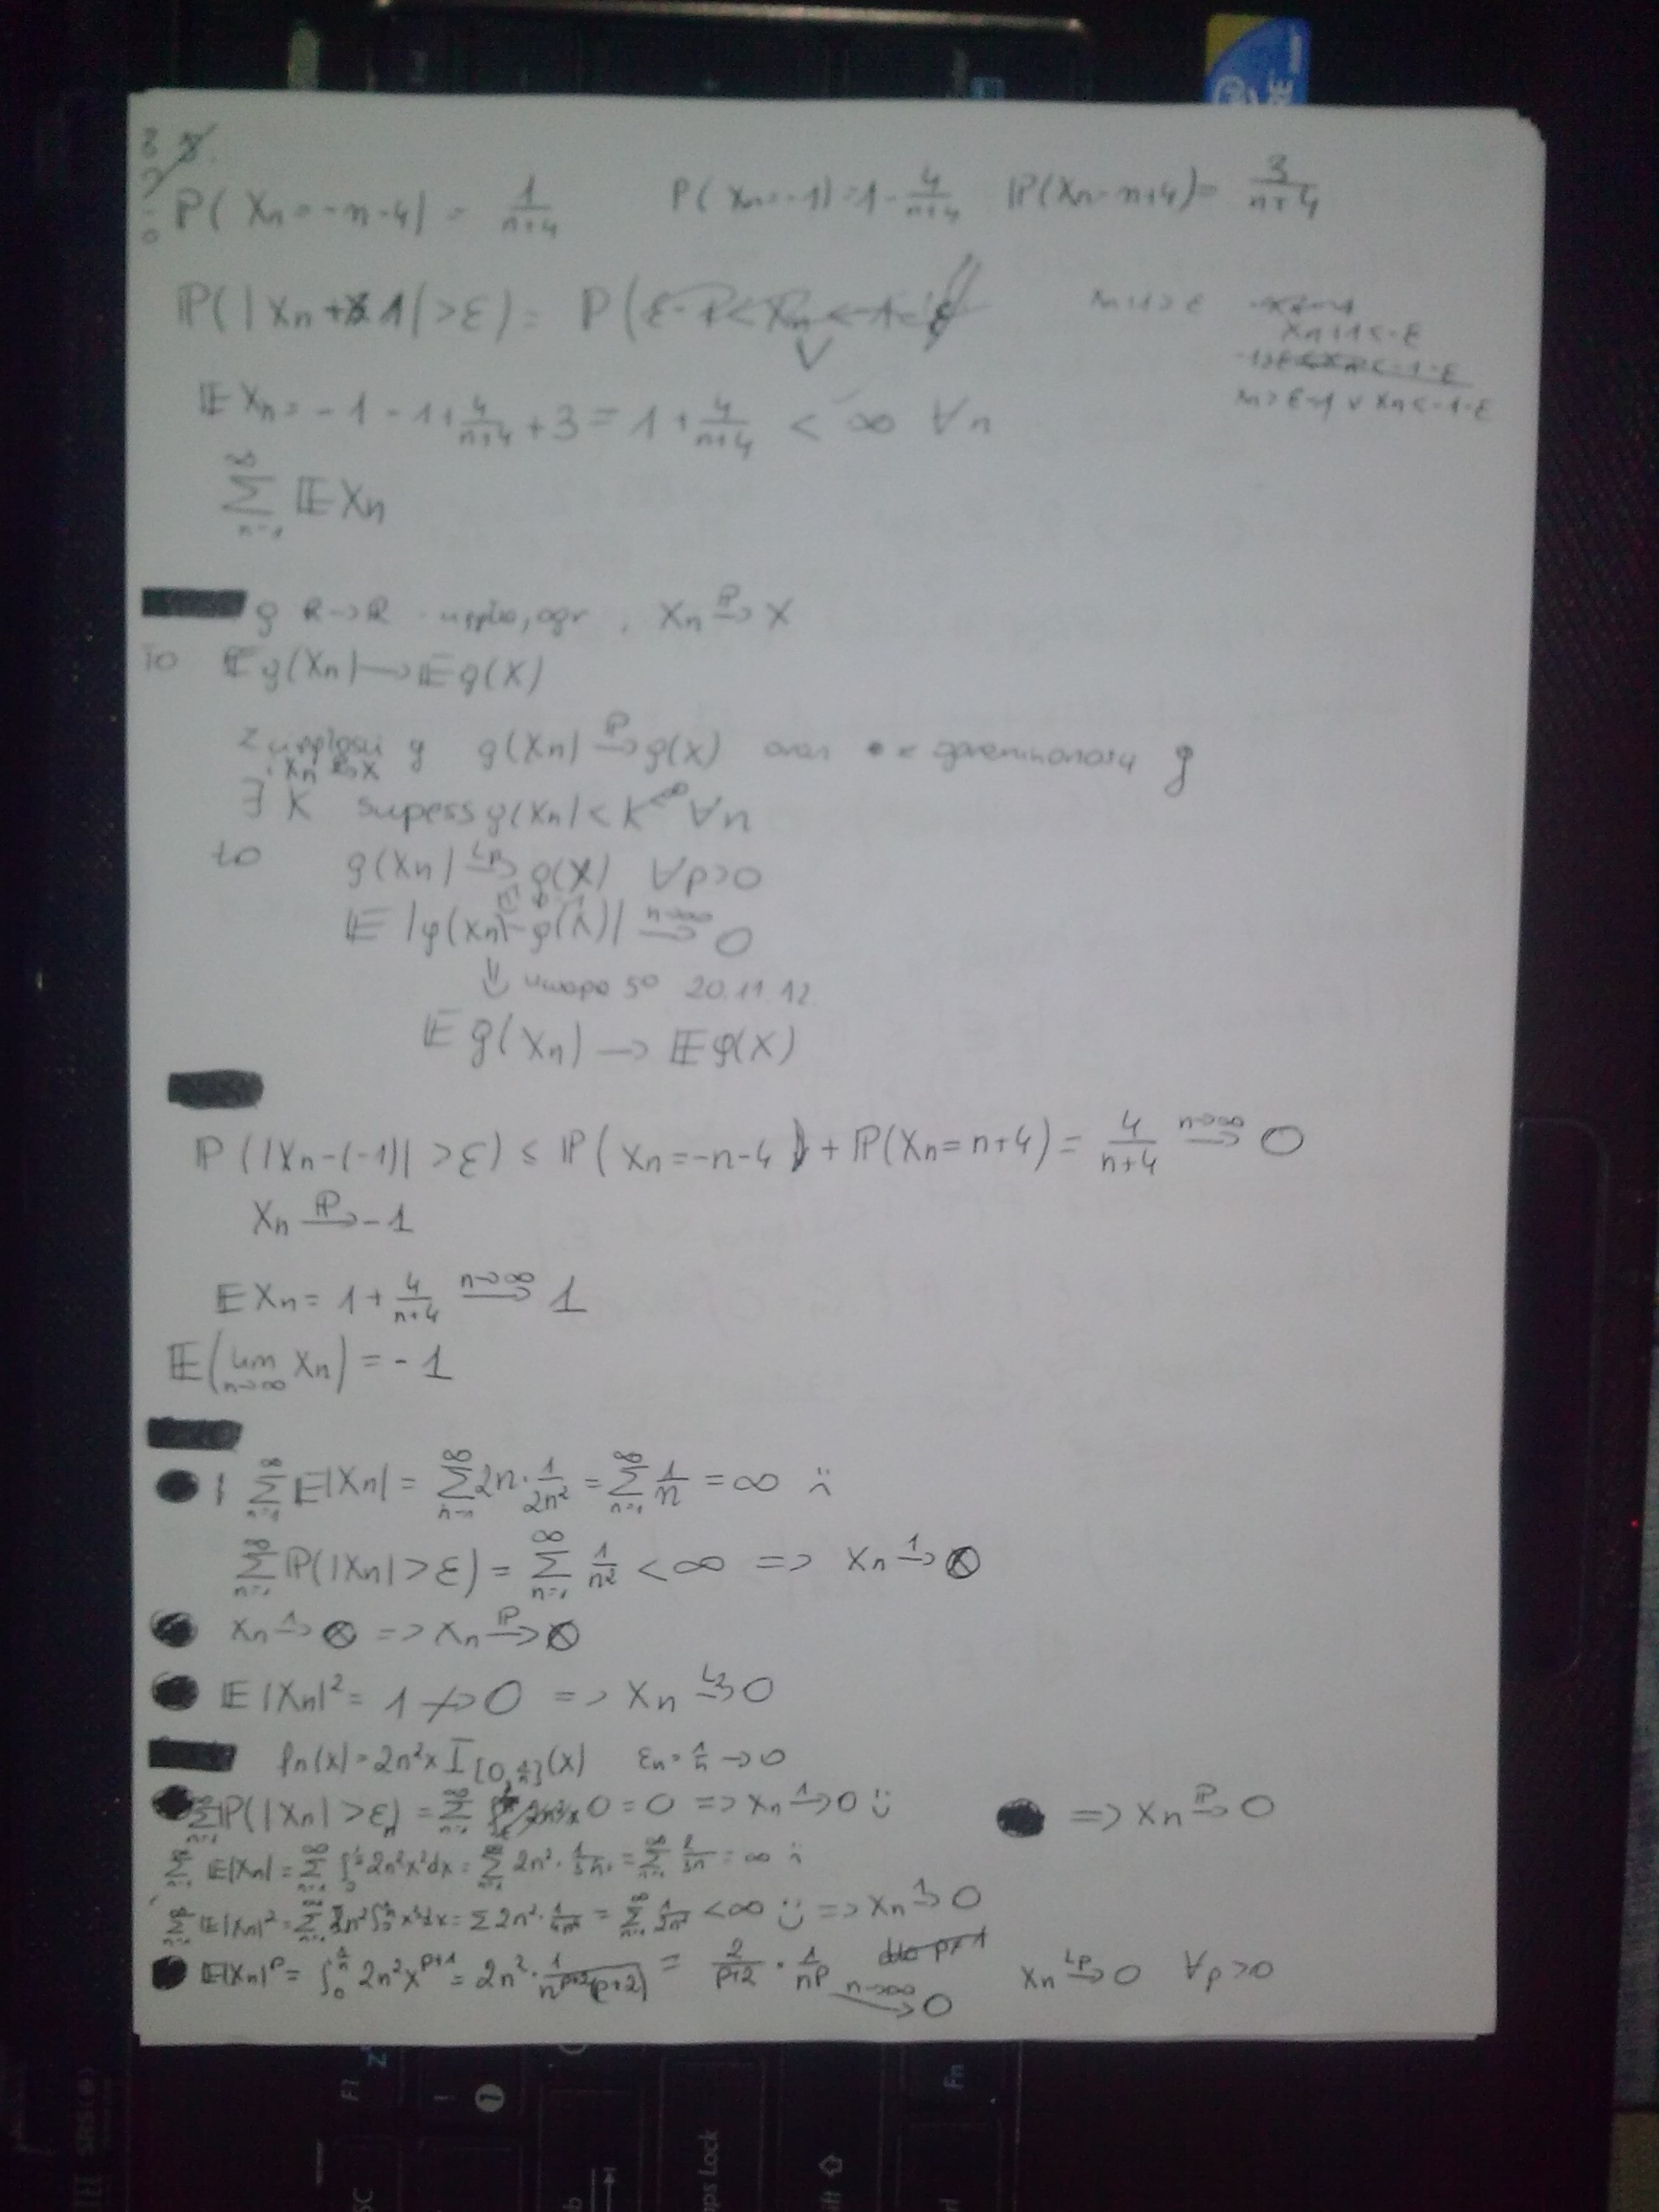 P(Xn = -n-4) = 1/(n+4)   P(Xn = -1) = 1 - 4/(n+4)   P(Xn = n+4) = 3/(n+4)
P(|Xn + 1| > ε) = P(
Xn+1 > ε
Xn+1 < -ε
Xn > ε-1 ∨ Xn < -1-ε
E Xn = -1 - 1 + 4/(n+4) + 3 = 1 + 4/(n+4) < ∞ ∀n
∑_{n=1}^{∞} E Xn
g R→R ogr, Xn →^P X
To E g(Xn) → E g(X)
z g g(Xn) →^P g(X) oraz z ograniczoności g
i Xn →^P X
∃ K supess g(Xn) < K < ∞ ∀n
to g(Xn) →^{Lp} g(X) ∀p>0
E |g(Xn) - g(X)| →^{n→∞} 0
⇓ uwaga 5° 20.11.12
E g(Xn) → E g(X)
P(|Xn-(-1)| > ε) ≤ P(Xn = -n-4) + P(Xn = n+4) = 4/(n+4) →^{n→∞} 0
Xn →^P -1
E Xn = 1 + 4/(n+4) →^{n→∞} 1
E(lim_{n→∞} Xn) = -1
∑_{n=1}^{∞} E|Xn| = ∑_{n=1}^{∞} 2n · 1/(2n²) = ∑_{n=1}^{∞} 1/n = ∞ :(
∑_{n=1}^{∞} P(|Xn| > ε) = ∑_{n=1}^{∞} 1/n² < ∞ => Xn →^1 0
Xn →^1 0 => Xn →^P 0
E|Xn|² = 1 ↛ 0 => Xn 0
fn(x) = 2n²x I_{[0,1/n]}(x)   εn = 1/n → 0
∑ P(|Xn| > εn) = ∑ 0 = 0 => Xn →^1 0 :)   => Xn →^P 0
∑ E|Xn| = ∑ ∫_0^{1/n} 2n²x² dx = ∑ 2n² · 1/(3n³) = ∑ 2/(3n) = ∞ :(
∑ E|Xn|² = ∑ 2n² ∫_0^{1/n} x³ dx = ∑ 2n² · 1/(4n⁴) = ∑ 1/(2n²) < ∞ :) => Xn →^1 0
E|Xn|^p = ∫_0^{1/n} 2n²x^{p+1} = 2n² · 1/(n^{p+2}(p+2)) = 2/(p+2) · 1/n^p →^{n→∞} 0   Xn →^{Lp} 0 ∀p>0